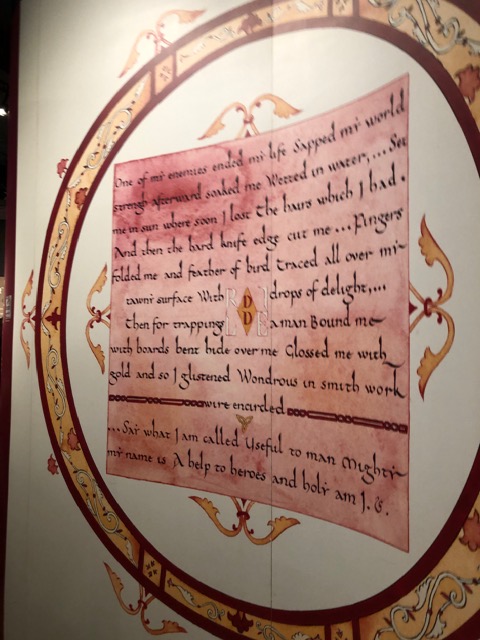 One of my enemies ended my life Sapped my world
strength afterward soaked me Wetted in water,... Set
me in sun where soon I lost the hairs which I had.
And then the hard knife edge cut me... Fingers
folded me and feather of bird traced all over my
tawny surface With drops of delight,...
then for trappings a man Bound me
with boards bent hide over me Glossed me with
gold and so I glistened Wondrous in smith work
wire encircled
...Say what I am called Useful to man Mighty
my name is A help to heroes and holy am I.